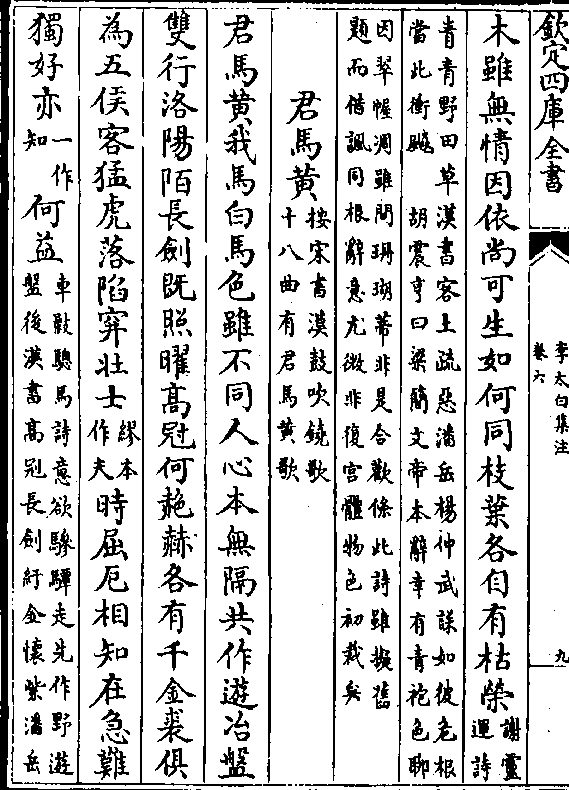 欽定四庫全書
李太白集注
卷六
九
木雖無情因依尚可生如何同枝葉各自有枯榮
謝靈
運詩
青青野田草漢書客土疏惡潘岳楊仲武誄如彼危根
當此衝飈　胡震亨曰梁簡文帝本辭章有青袍色聊
因翠幄凋雖問珊瑚蒂非是合歡條此詩雖擬舊
題而借諷同根辭意尤微非復宮體物色初裁矣
君馬黃
按宋書漢鼓吹鐃歌
十八曲有君馬黃歌
君馬黃我馬白馬色雖不同人心本無隔共作遊冶盤
雙行洛陽陌長劍既照曜高冠何赩赫各有千金裘俱
為五侯客猛虎落陷穽壯士
繆本
作夫
時屈厄相知在急難
獨好亦
一作
知
何益
車驄馬詩意欲驂驒走先作野遊
盤後漢書高冠長劍紆金懷紫潘岳